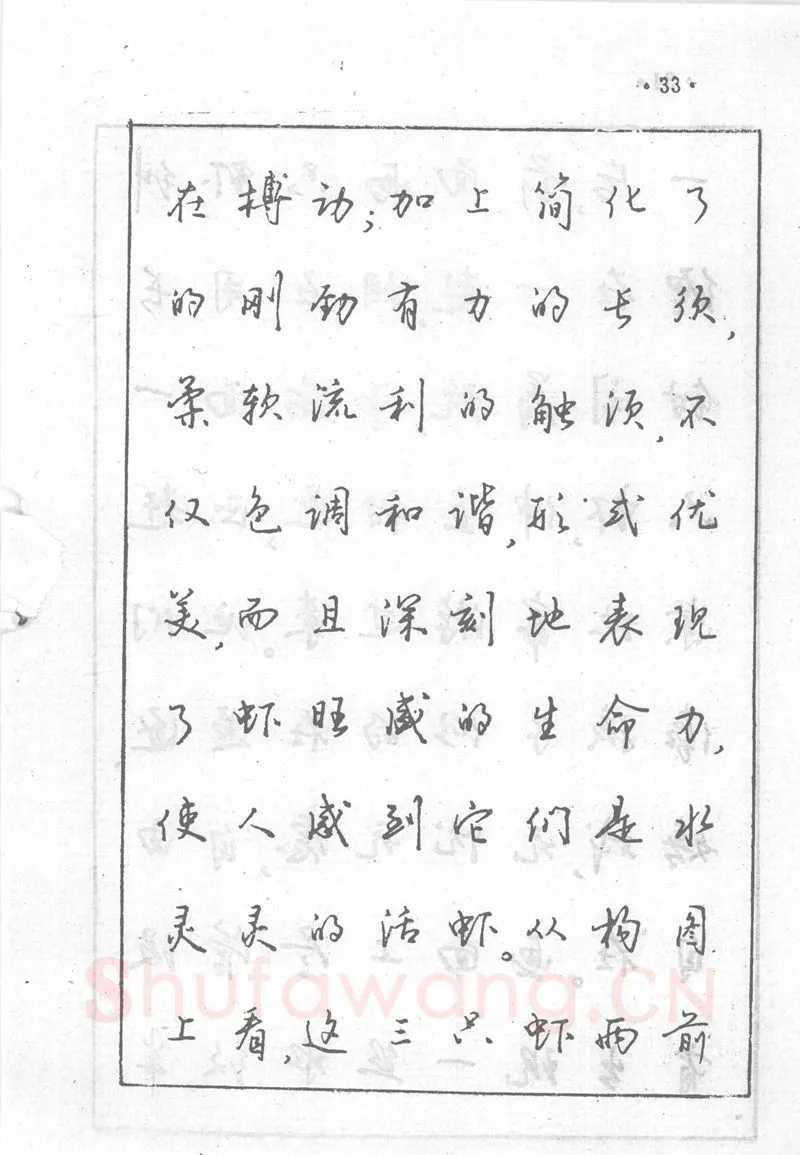 ·33·
在搏动；加上简化了
的刚劲有力的长须，
柔软流利的触须，不
仅色调和谐，形式优
美，而且深刻地表现
了虾旺盛的生命力，
使人感到它们是水
灵灵的活虾。从构图
上看，这三只虾两前
Shufawang.CN